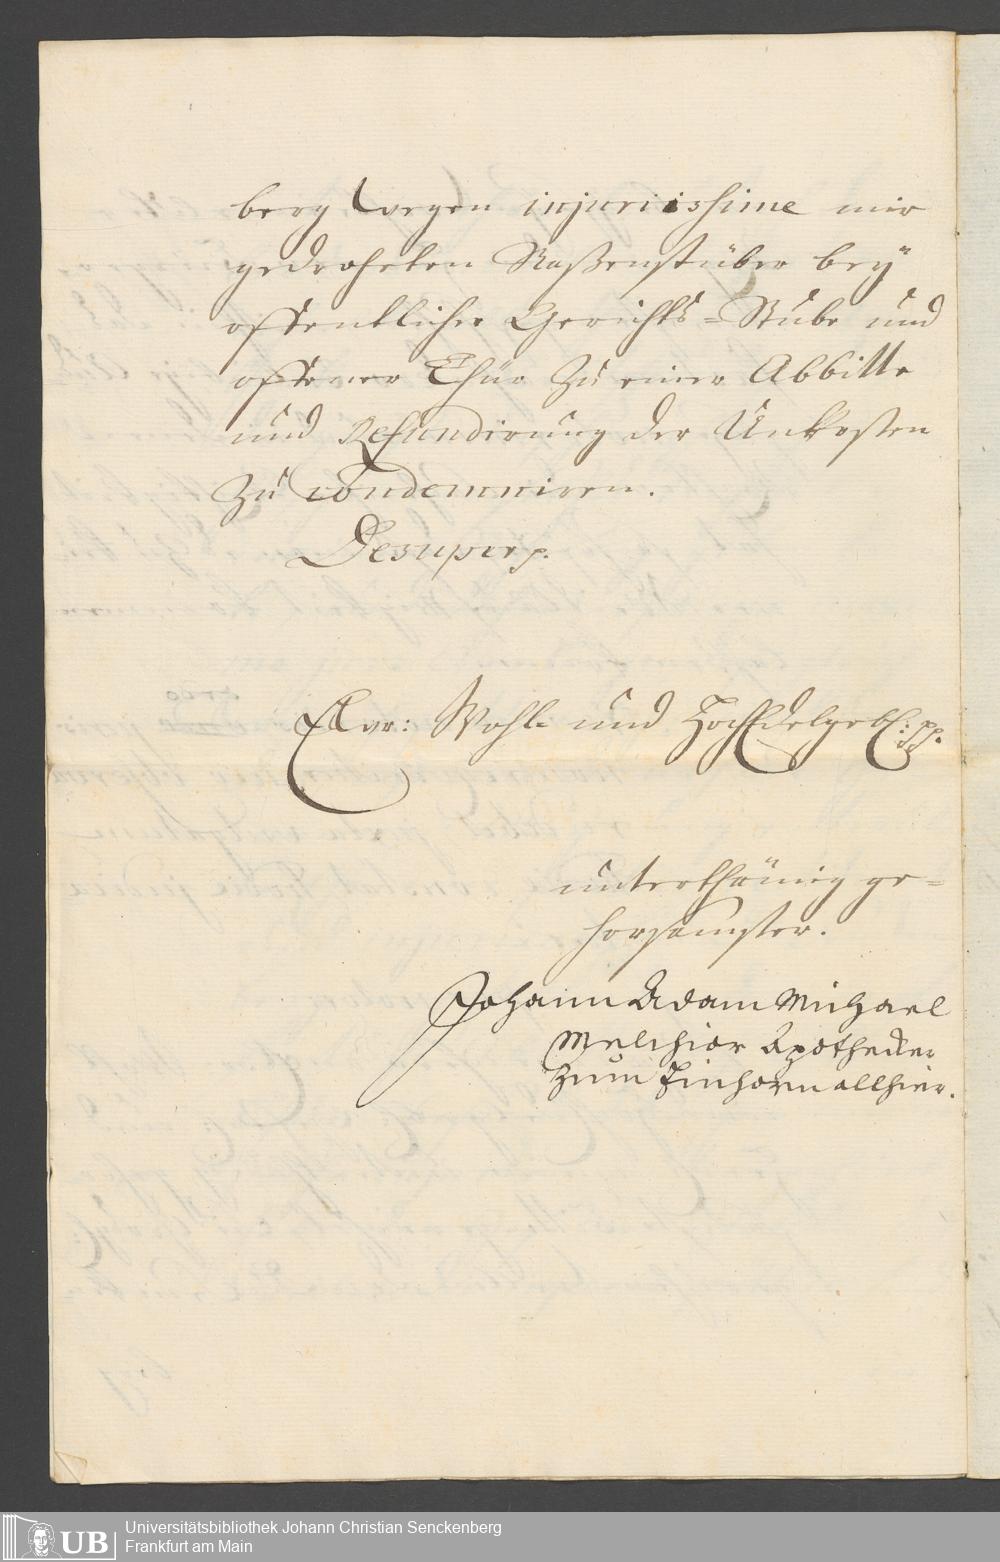 berg wegen injuriissime mir
gedroheten Naßenstüber beÿ
offentlicher Gerichts=Stube und
offener Thür zu einer Abbitte
und Refundirung der Unkosten
zu condemniren.
Desuper p.
Ewr: Wohl- und HochEdelgebl: pp.
unterthänig ge=
horsamster.
Johann Adam Michael
Melchior Apothecker
zum Einhorn allhier.
UB
Universitätsbibliothek Johann Christian Senckenberg
Frankfurt am Main